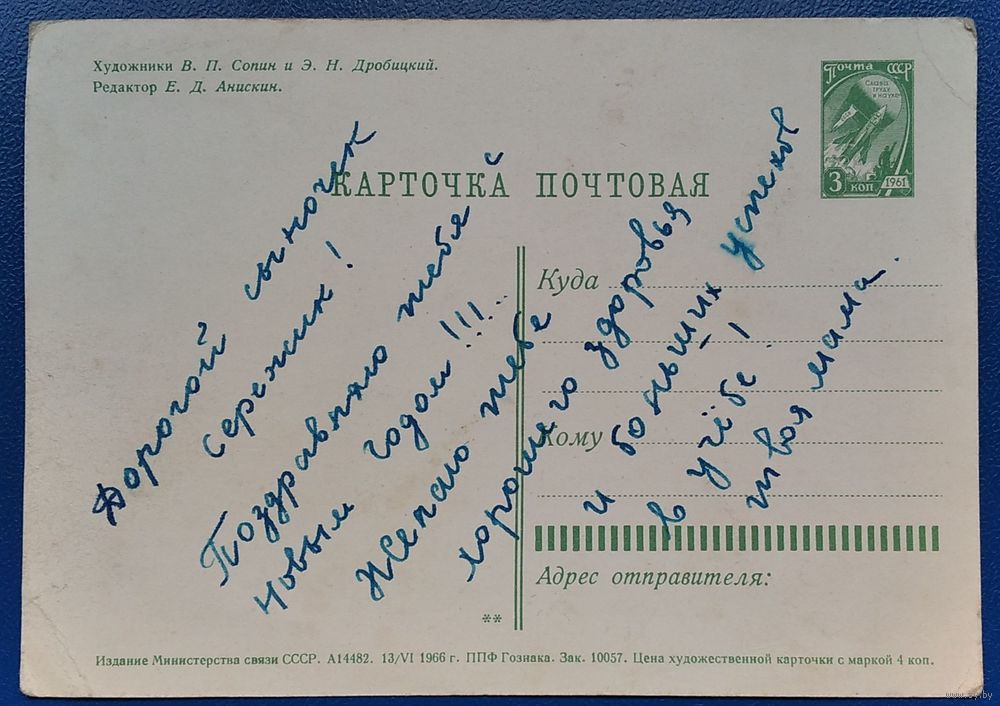 Художники В. П. Сопин и Э. Н. Дробицкий.
Редактор Е. Д. Анискин.
Почта СССР
Слава
труду
и науке
3 коп
1961
КАРТОЧКА ПОЧТОВАЯ
Дорогой сыночек
сережик!
Поздравляю тебя с
новым годом!!!..
Желаю тебе
хорошего здоровья
и больших успехов
в учёбе!
твоя мама.
Куда
Кому
Адрес отправителя:
**
Издание Министерства связи СССР. А14482. 13/VI 1966 г. ППФ Гознака. Зак. 10057. Цена художественной карточки с маркой 4 коп.